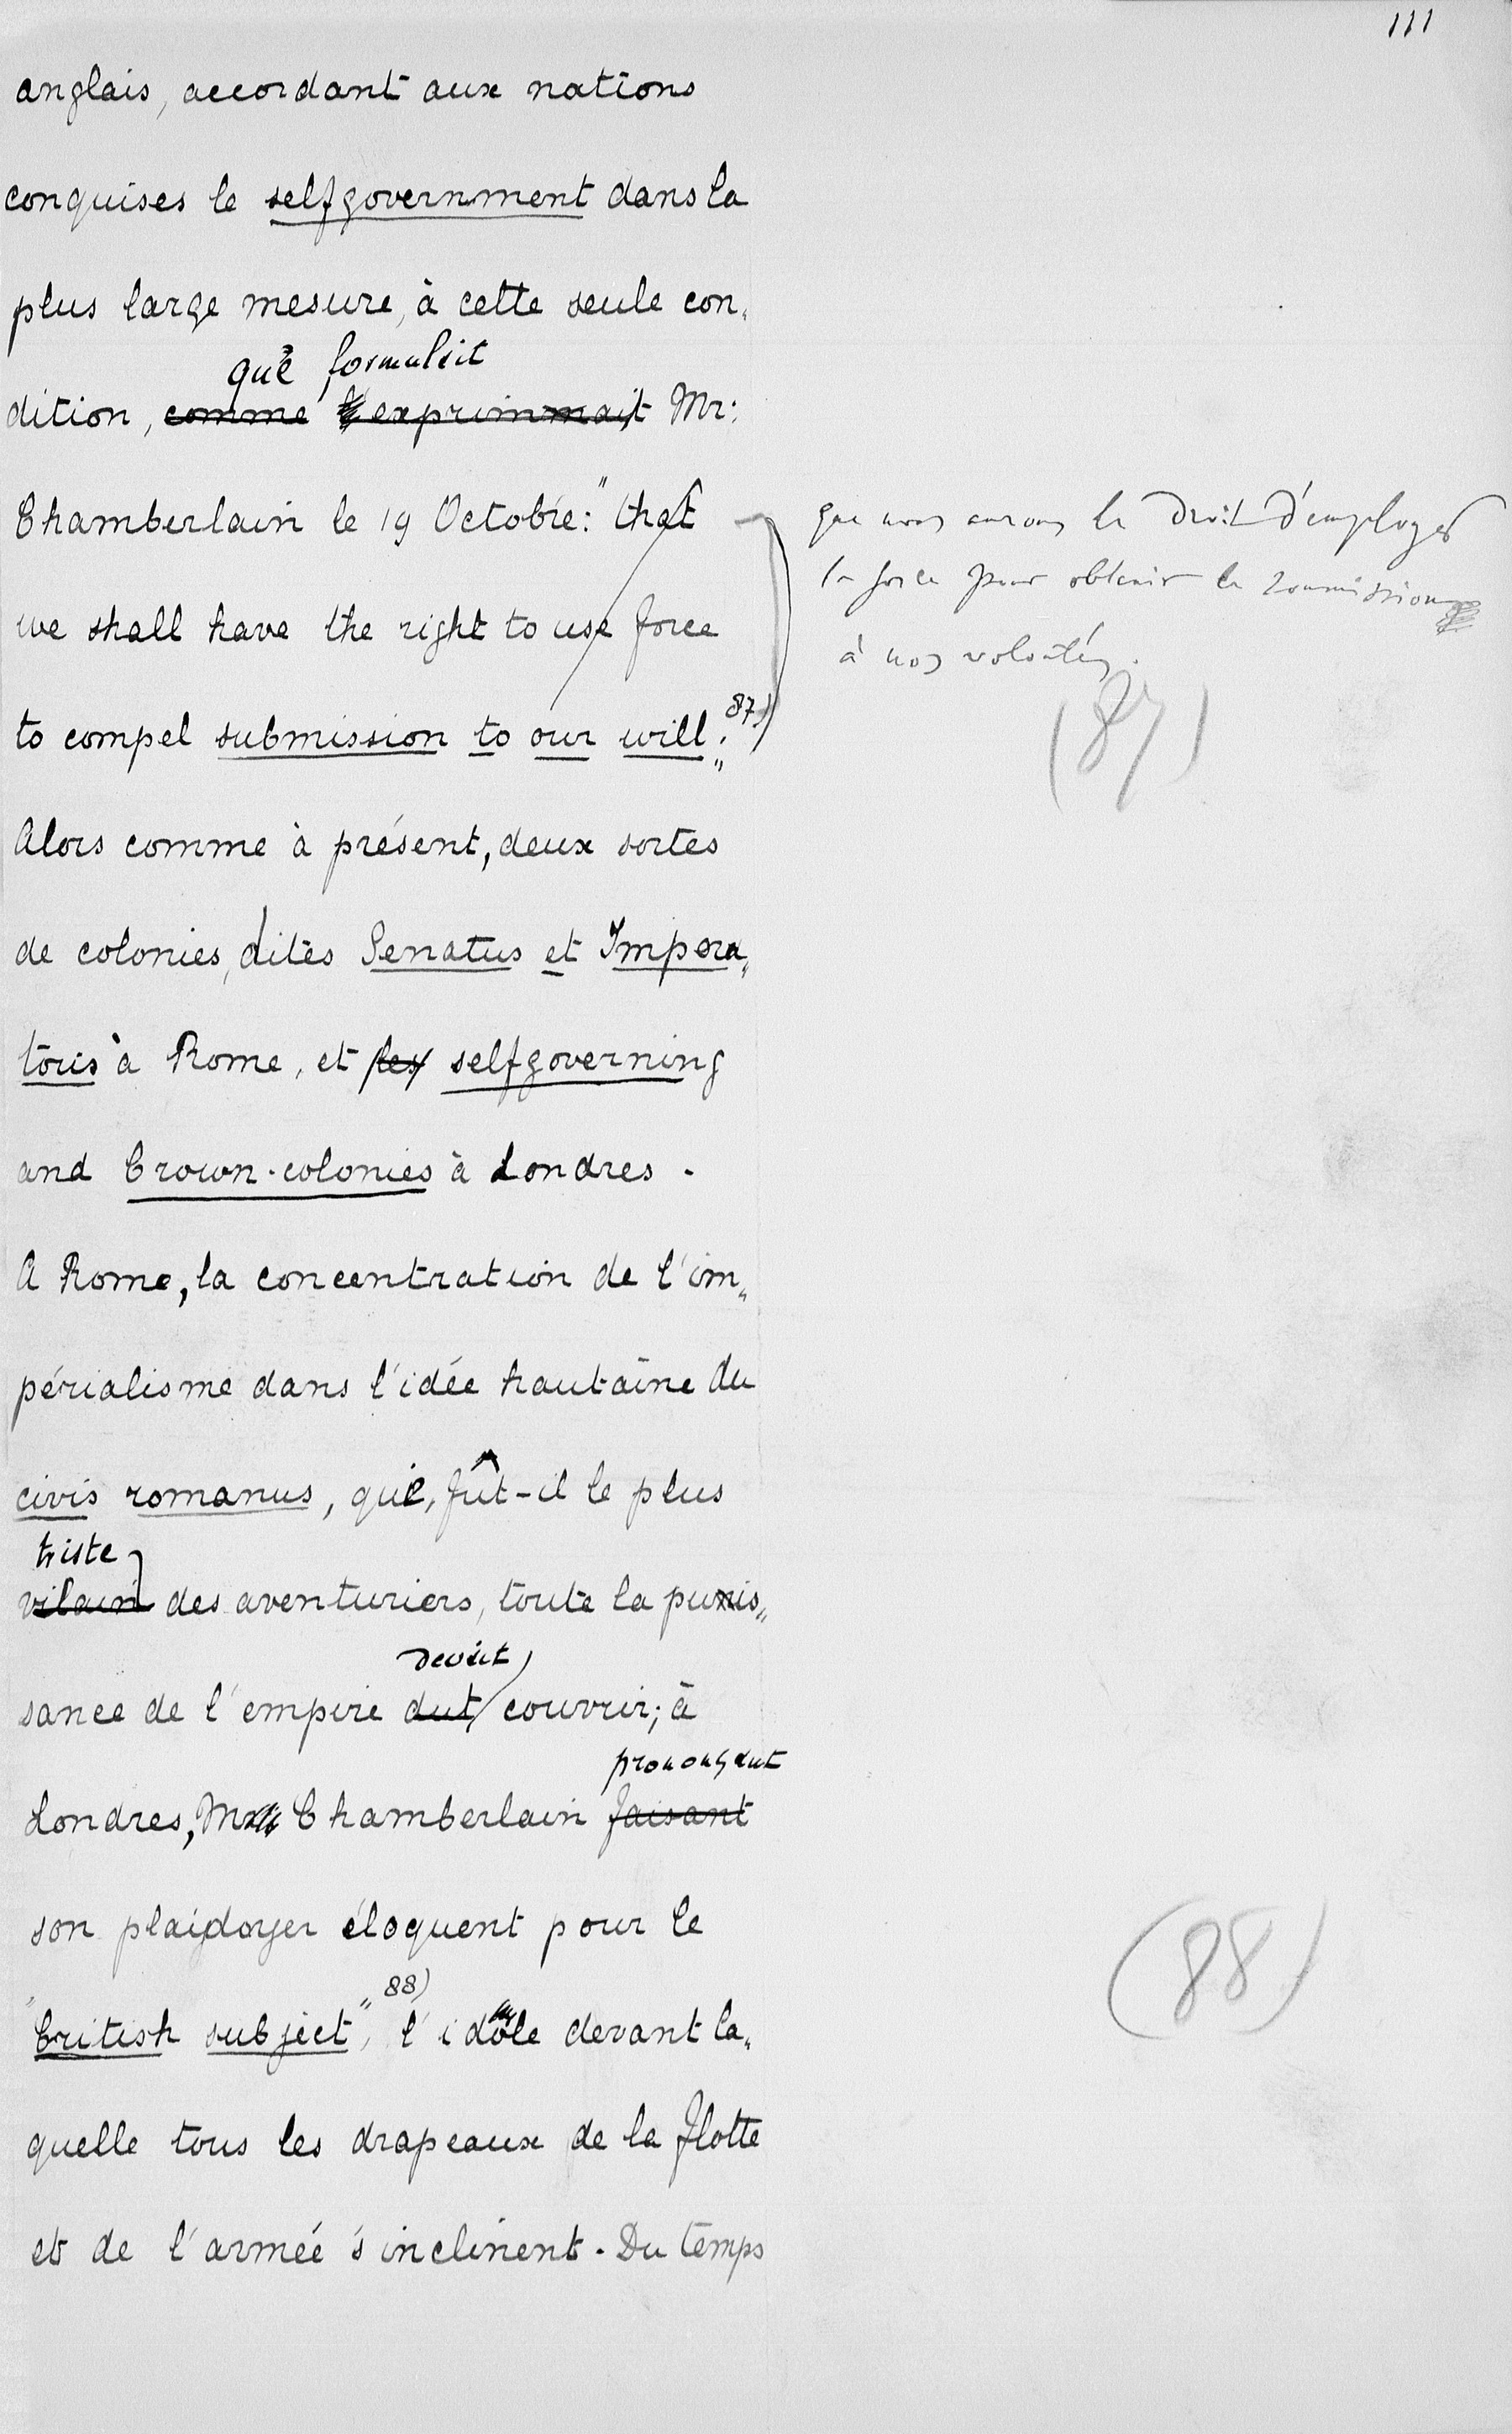 111
anglais, accordant aux nations
conquises le selfgovernment dans la
plus large mesure, à cette seule con„
que formulait
dition, comme l'exprimmait Mr:
Chamberlain le 19 Octobre: "that
we shall have the right to use force
to compel submission to our will." 87)
que nous aurons le droit d'employer
la force pour obtenir la soumission
à nos volontés.
(87)
Alors comme à présent, deux sortes
de colonies, dites Senatus et Impera„
toris à Rome, et les selfgoverning
and Crown-colonies à Londres.
A Rome, la concentration de l'im„
périalisme dans l'idée hautaine du
civis romanus, que, fût-il le plus
triste
vilain des aventuriers, toute la puis„
devait
sance de l'empire dut couvrir; à
prononçant
Londres, Mr Chamberlain faisant
son plaidoyer éloquent pour le
"british subject", 88) l'idole devant la„
(88)
quelle tous les drapeaux de la flotte
et de l'armée s'inclinent. Du temps